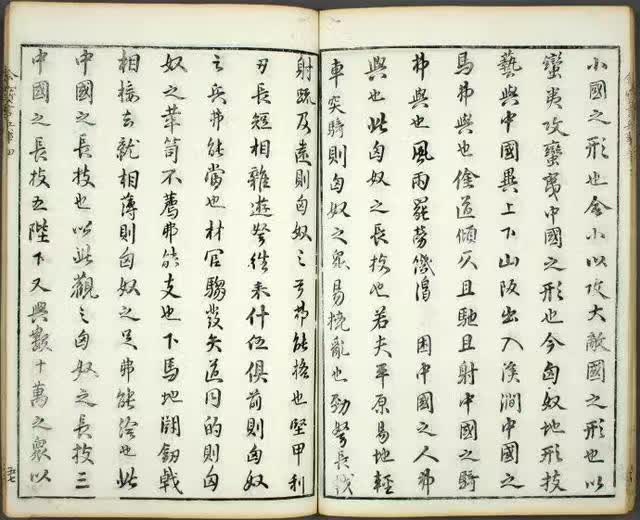 小國之形也合小以攻大敵國之形也以
蠻夷攻蠻夷中國之形也今匈奴地形技
藝與中國異上下山阪出入溪澗中國之
馬弗與也險道傾仄且馳且射中國之騎
弗與也風雨罷勞饑渴 困中國之人弗
與也此匈奴之長技也若夫平原易地輕
車突騎則匈奴之眾易撓亂也勁弩長戟
射疏及遠則匈奴之弓弗能格也堅甲利
刃長短相雜遊弩往來什伍俱前則匈奴
之兵弗能當也材官騶發矢道同的則匈
奴之革笥木薦弗能支也下馬地鬭劒戟
相接去就相薄則匈奴之足弗能給也此
中國之長技也以此觀之匈奴之長技三
中國之長技五陛下又興數十萬之眾以